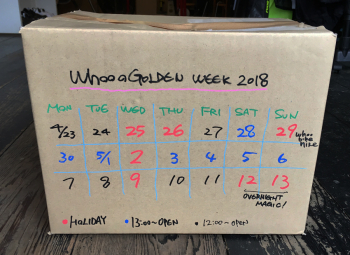 WHOOAGOLDEN WEEK 2018
MON TUE WED THU FRI SAT SUN
4/23 24 25 26 27 28 29
30 5/1 2 3 4 5 6
7 8 9 10 11 12 13
OVERNIGHT
MAGIC!
•HOLIDAY •13:00~OPEN •12:00~OPEN